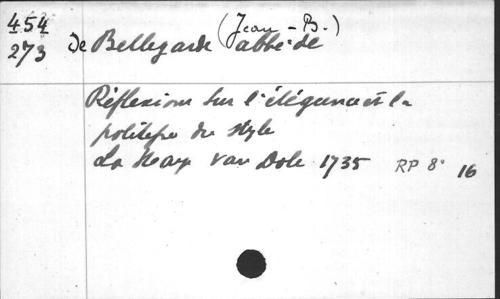 454 (Jean-B.)
273 De Bellegarde abbé de
Réflexions sur l'élégance et la
politesse du style
La Haye van Dole 1735 RP 8° 16